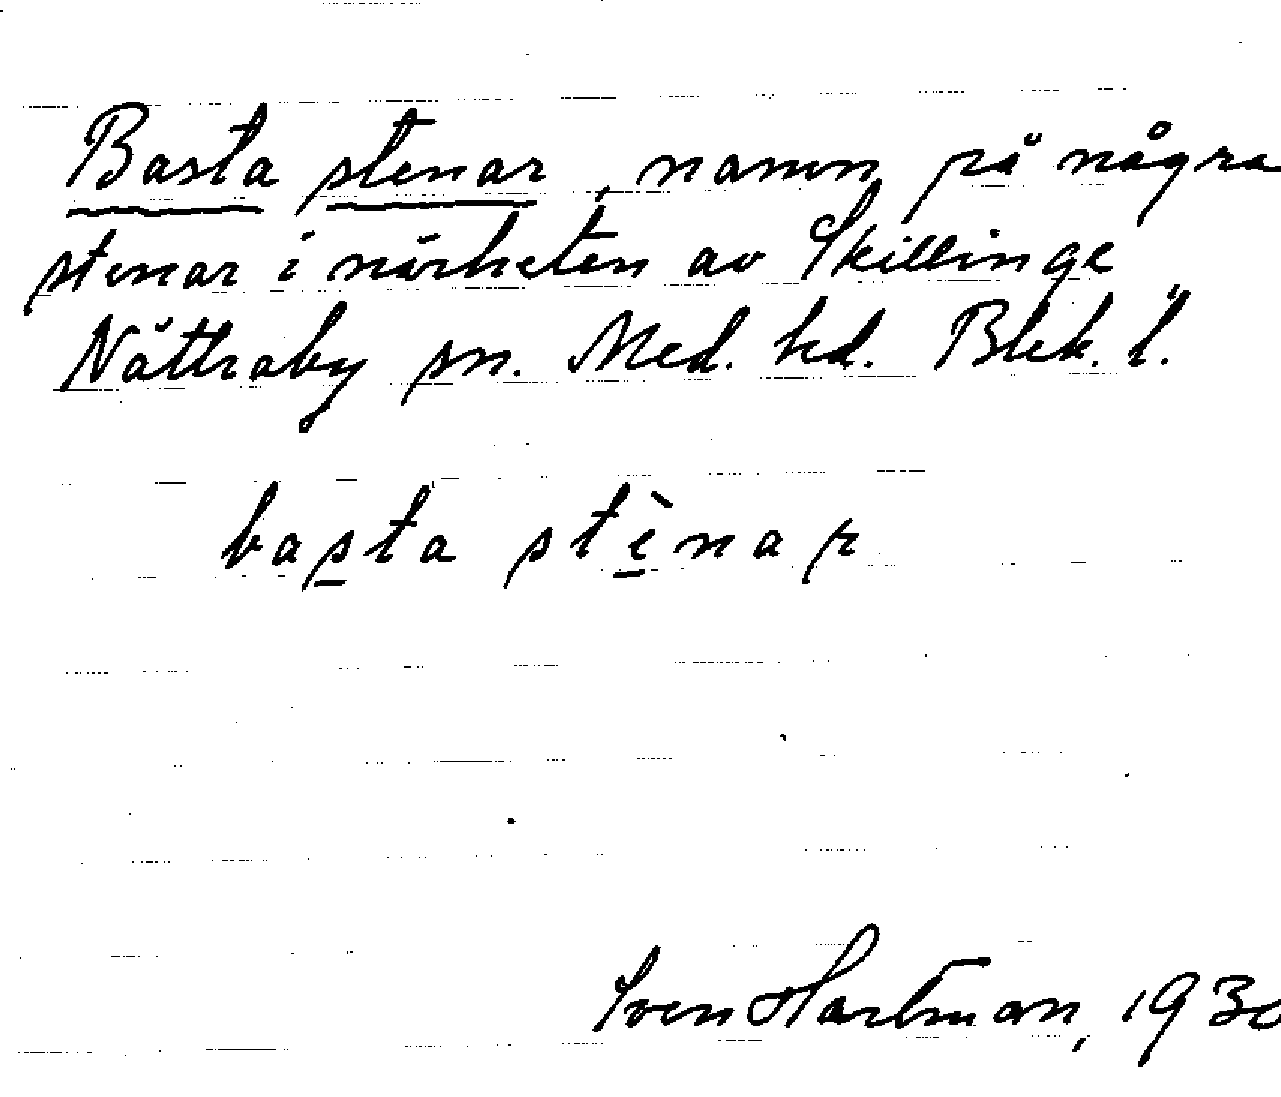 Basta stenar, namn på några
stenar i närheten av Skillinge
Nättraby sn. Med. hd. Blek. l.
basta stènar
Sven Hartman, 1930